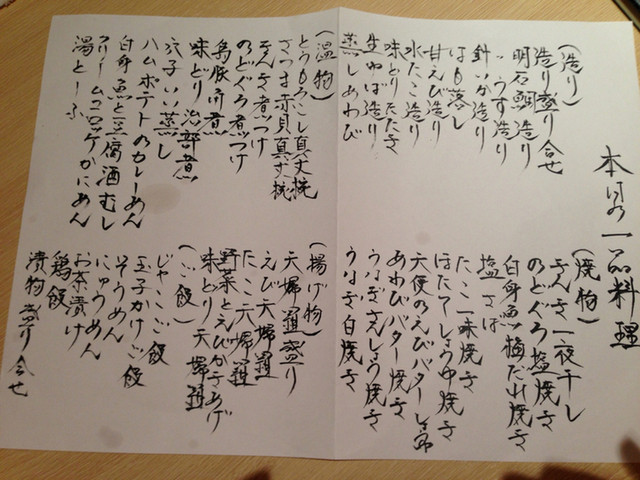 本日の一品料理
(造り)
造り盛り合せ
明石鯛造り
〃うす造り
針いか造り
はも落し
甘えび造り
水たこ造り
味どりたたき
生ゆば造り
蒸しあわび
(温物)
とうもろこし真丈椀
さつま赤貝真丈椀
きんき煮つけ
のどぐろ煮つけ
烏豚角煮
味どり治部煮
穴子いい蒸し
ハムポテトのカレーめん
白身魚と豆腐酒むし
クリームコロッケかにめん
湯とーふ
(焼物)
きんき一夜干し
のどぐろ塩焼き
白身魚梅だれ焼き
塩さば
たこ一味焼き
ほたてしょうゆ焼き
天使のえびバターしょう油
あわびバター焼き
うなぎさんしょう焼き
うなぎ白焼き
(揚げ物)
天婦羅盛り
えび天婦羅
たこ天婦羅
野菜とえびかきあげ
味どり天婦羅
(ご飯)
じゃこご飯
玉子かけご飯
そうめん
にゅうめん
お茶漬け
鶏飯
漬物盛り合せ